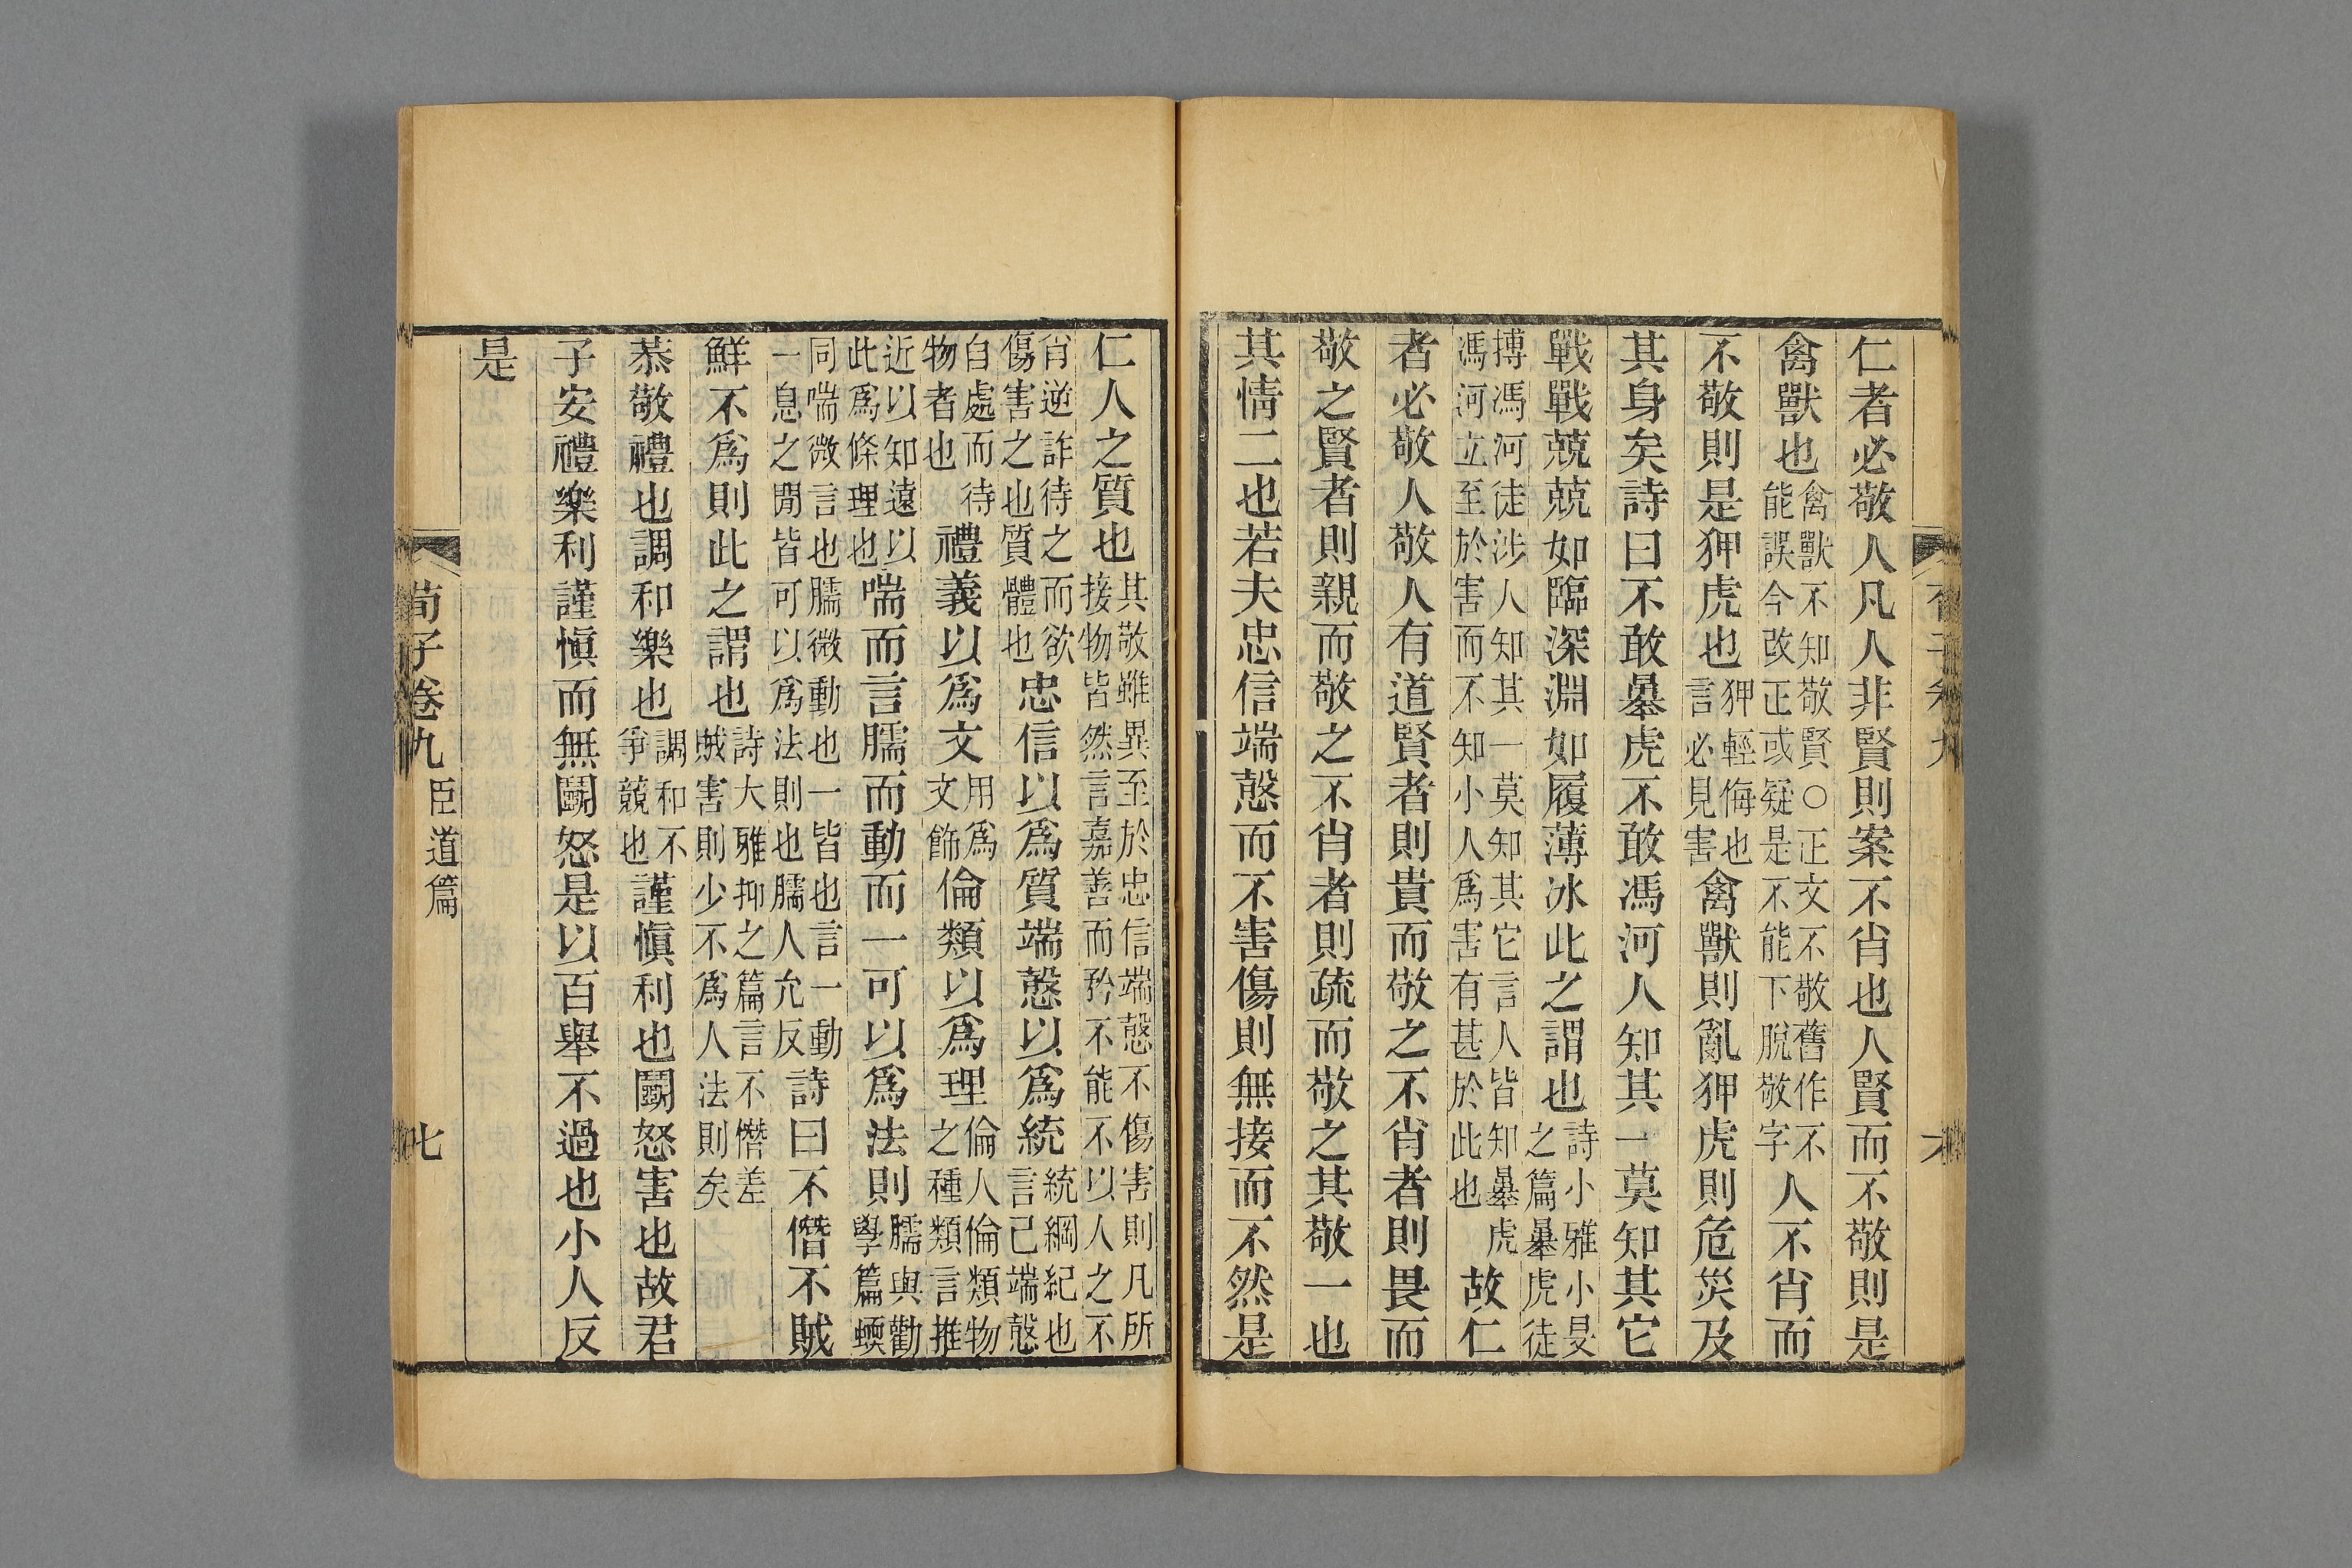 仁者必敬人凡人非賢則案不肖也人賢而不敬則是
禽獸也禽獸不知敬賢○正文不敬舊作不能誤今改正或疑是不能下脫敬字人不肖而
不敬則是狎虎也狎輕侮也言必見害禽獸則亂狎虎則危災及
其身矣詩曰不敢暴虎不敢馮河人知其一莫知其它
戰戰兢兢如臨深淵如履薄冰此之謂也詩小雅小旻之篇暴虎徒
搏馮河徒涉人知其一莫知其它言人皆知暴虎馮河立至於害而不知小人爲害有甚於此也故仁
者必敬人敬人有道賢者則貴而敬之不肖者則畏而
敬之賢者則親而敬之不肖者則疏而敬之其敬一也
其情二也若夫忠信端慤而不害傷則無接而不然是
仁人之質也其敬雖異至於忠信端慤不傷害則凡所接物皆然言嘉善而矜不能不以人之不
肖逆詐待之而欲傷害之也質體也忠信以爲質端慤以爲統統綱紀也言己端慤
自處而待物者也禮義以爲文用爲文飾倫類以爲理倫人倫類物之種類言推
近以知遠以此爲條理也喘而言臑而動而一可以爲法則臑與勸學篇蝡
同喘微言也臑微動也一皆也言一動一息之閒皆可以爲法則也臑人允反詩曰不僭不賊
鮮不爲則此之謂也詩大雅抑之篇言不僭差賊害則少不爲人法則矣
恭敬禮也調和樂也調和不爭競也謹愼利也鬭怒害也故君
子安禮樂利謹愼而無鬭怒是以百舉不過也小人反
是
荀子卷九 臣道篇 七